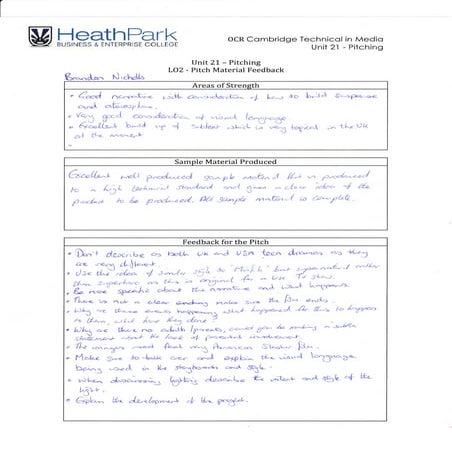 HeathPark
BUSINESS & ENTERPRISE COLLEGE
OCR Cambridge Technical in Media
Unit 21 - Pitching
Unit 21 – Pitching
LO2 - Pitch Material Feedback
Brandon Nicholls
Areas of Strength
• Good narrative with consideration of how to build suspense
and atmosphere.
• Very good consideration of visual language
• Excellent build up of subtext which is very topical in the UK
at the moment
Sample Material Produced
Excellent well produced sample material that is produced
to a high technical standard and gives a clear idea of the
product to be produced. All sample material is complete.
Feedback for the Pitch
• Don't describe as both UK and USA teen dramas as they
are very different.
• Use the idea of similar style to 'Misfits' but supernatural rather
than superhero as this is original for a UK TV show.
• Be more specific about the narrative and what happens.
• There is not a clear ending make sure the film ends.
• Why are these events happening what happened for this to happen
to them, what have they done?
• Why are there no adults/parents, could you be making a subtle
statement about the lack of parental involvement.
• The images used feel very American Slasher film.
• Make sure to talk over and explain the visual language
being used in the storyboards and style.
• When discussing lighting describe the intent and style of the
look.
• Explain the development of the project.